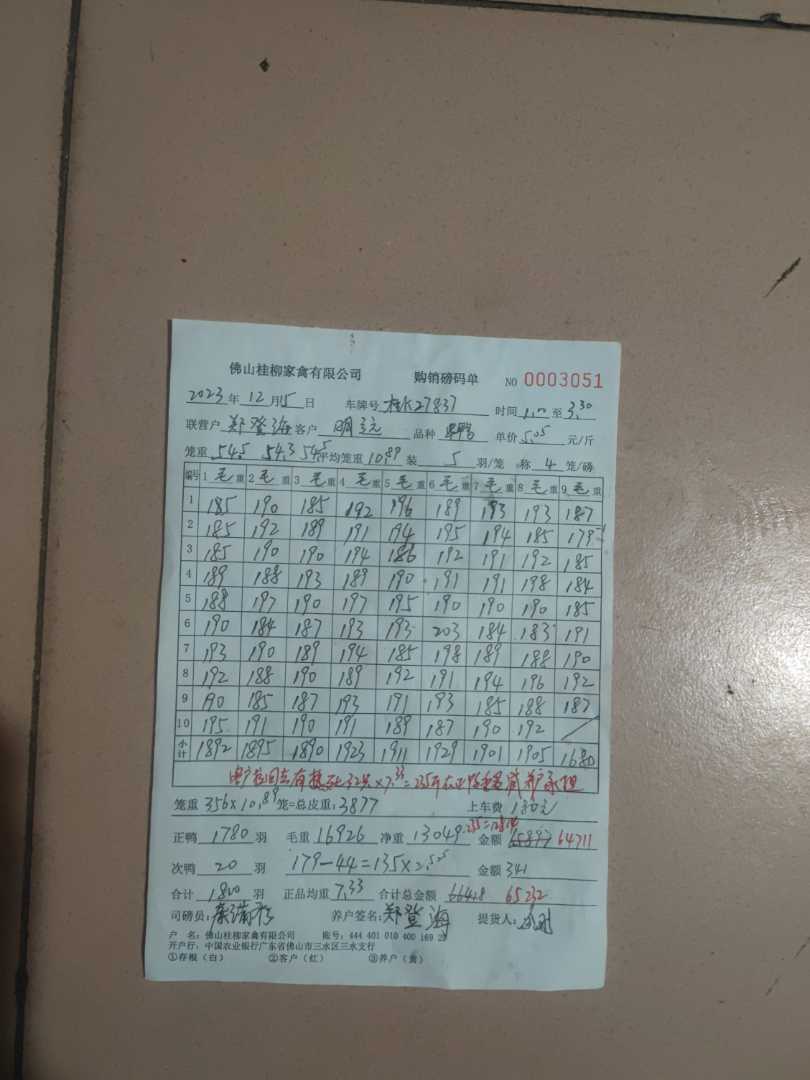 佛山桂柳家禽有限公司 购销磅码单 NO 0003051
2023年12月5日 车牌号 桂K27837 时间1.00至3.30
联营户 郑登海 客户 明记 品种 鸭 单价5.05元/斤
笼重 54.5 54.3 54.5 平均笼重10.89 装 5 羽/笼 称 4 笼/磅
编号 1毛重 2毛重 3毛重 4毛重 5毛重 6毛重 7毛重 8毛重 9毛重
1 185 190 185 192 196 189 193 193 187
2 185 192 189 191 194 195 194 185 179
3 185 190 190 194 186 192 191 192 185
4 189 188 193 189 190 191 191 198 184
5 188 197 190 197 195 190 190 190 185
6 190 184 187 193 193 203 184 183 191
7 193 190 189 194 185 198 189 188 190
8 192 188 190 189 192 191 194 196 192
9 190 185 187 193 191 193 185 188 187
10 195 191 190 191 189 187 190 192
小计 1892 1895 1890 1923 1911 1929 1901 1905 1680
32只×7.33=235斤
笼重 356×10.89 笼=总皮重:3877 上车费 180元
正鸭 1780 羽 毛重 16926 净重 13049 金额 65897 64711
次鸭 20 羽 179-44=135×2.525 金额 341
合计 1800 羽 正品均重 7.33 合计总金额 66418 65232
司磅员: 养户签名:郑登海 提货人:
户 名: 佛山桂柳家禽有限公司 账号: 444 401 010 400 169 23
开户行: 中国农业银行广东省佛山市三水区三水支行
①存根(白) ②客户(红) ③养户(黄)